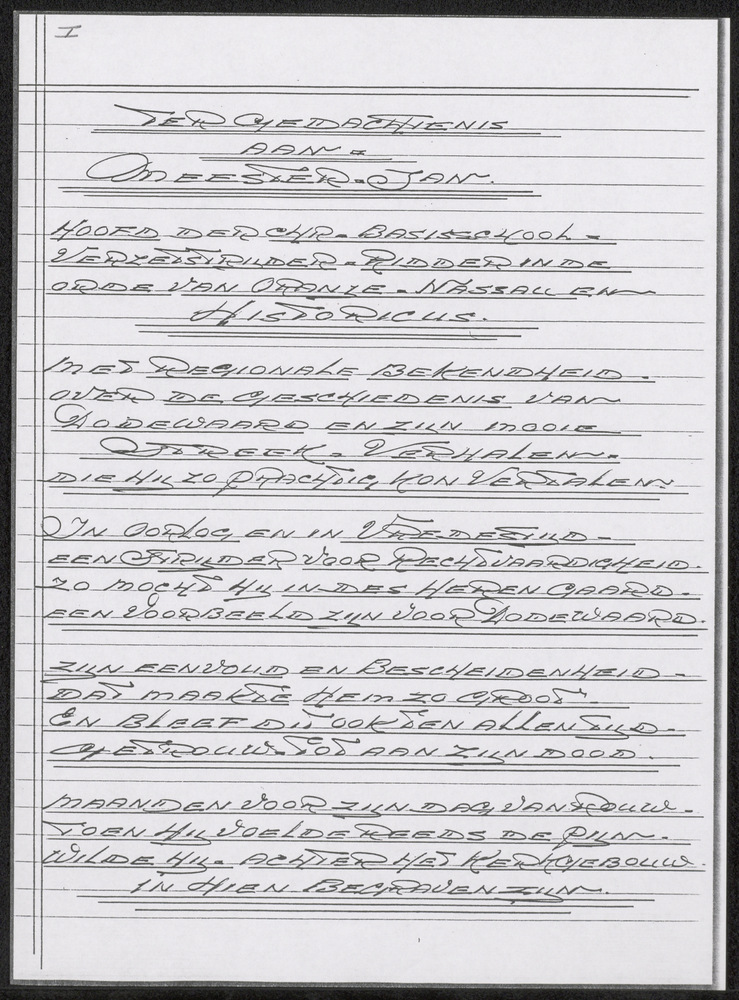 I
TER GEDACHTENIS
AAN =
MEESTER - JAN.
HOOFD DER CHR - BASISSCHOOL =
VERZETSTRIJDER - RIDDER IN DE
ORDE VAN ORANJE - NASSAU EN
HISTORICUS.
MET REGIONALE BEKENDHEID.
OVER DE GESCHIEDENIS VAN
DODEWAARD EN ZIJN MOOIE
STREEK - VERHALEN.
DIE HIJ ZO PRACHTIG KON VERTALEN.
IN OORLOG EN IN VREDESTIJD -
EEN STRIJDER VOOR RECHTVAARDIGHEID.
ZO MOCHT HIJ IN DES HEREN GAARD -
EEN VOORBEELD ZIJN VOOR DODEWAARD.
ZIJN EENVOUD EN BESCHEIDENHEID -
DAT MAAKTE HEM ZO GROOT.
EN BLEEF DIT OOK TEN ALLEN TIJD -
GETROUW - TOT AAN ZIJN DOOD.
MAANDEN VOOR ZIJN DAG VAN ROUW -
TOEN HIJ VOELDE REEDS DE PIJN -
WILDE HIJ - ACHTER HET KERKGEBOUW.
IN HIEN BEGRAVEN ZIJN.